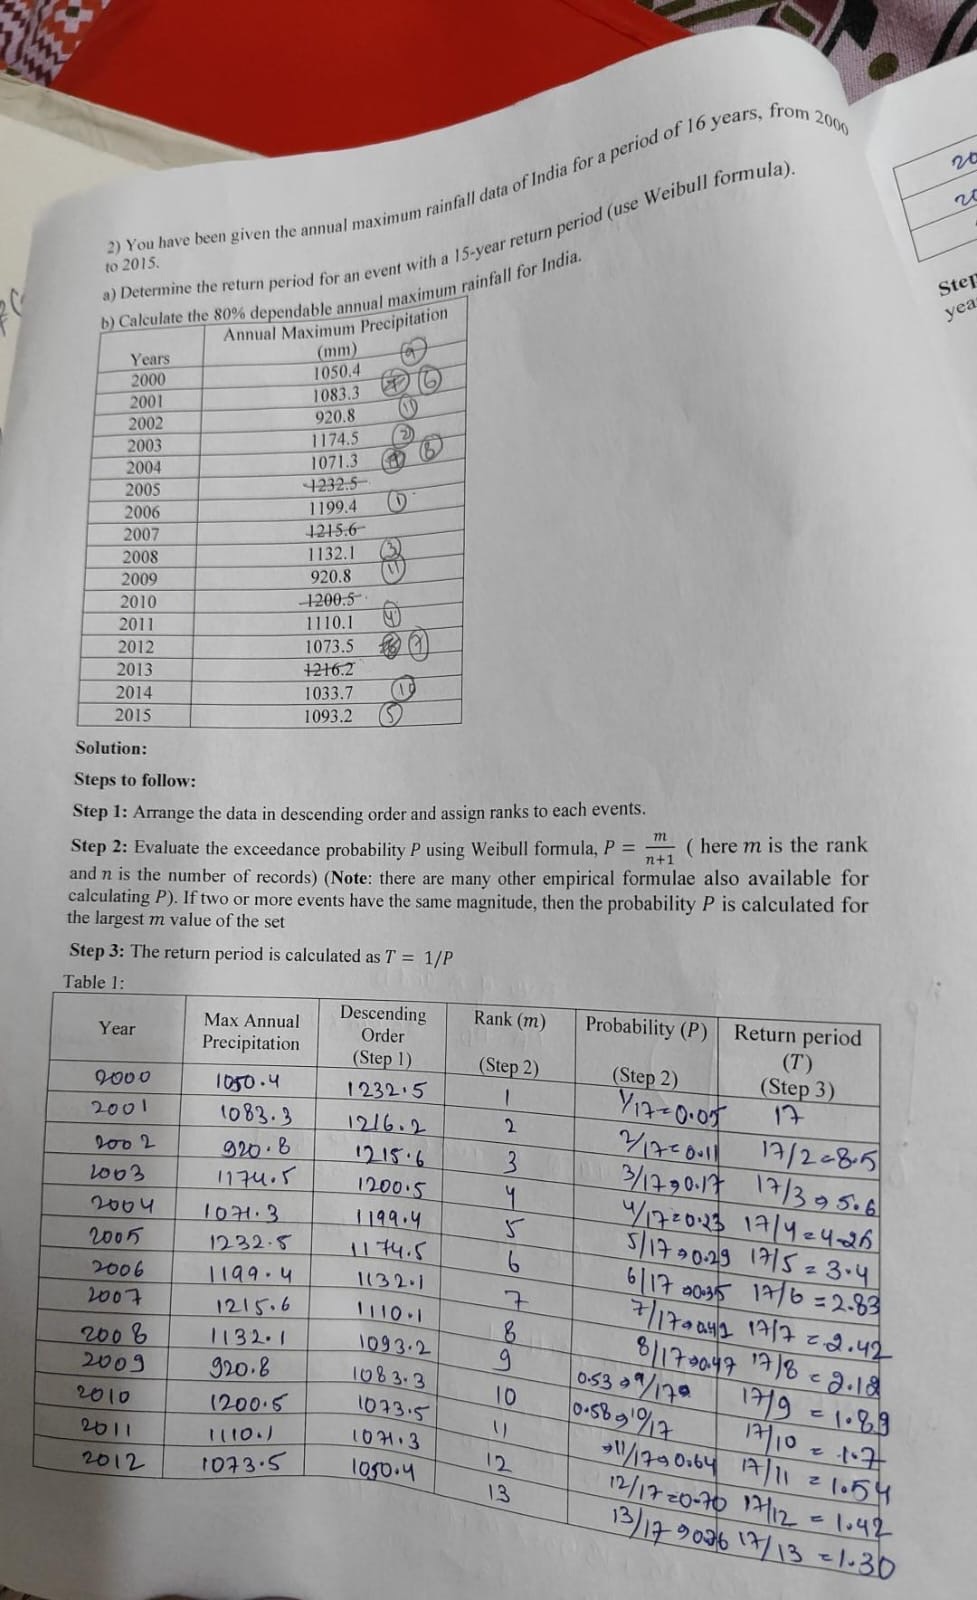 2) You have been given the annual maximum rainfall data of India for a period of 16 years, from 2000
to 2015.
a) Determine the return period for an event with a 15-year return period (use Weibull formula).
b) Calculate the 80% dependable annual maximum rainfall for India.
Years Annual Maximum Precipitation (mm)
2000 1050.4 9
2001 1083.3 6
2002 920.8 11
2003 1174.5 2
2004 1071.3 8
2005 1232.5
2006 1199.4 1
2007 1215.6
2008 1132.1 3
2009 920.8 11
2010 1200.5
2011 1110.1 4
2012 1073.5 7
2013 1216.2
2014 1033.7 10
2015 1093.2 5
Solution:
Steps to follow:
Step 1: Arrange the data in descending order and assign ranks to each events.
Step 2: Evaluate the exceedance probability P using Weibull formula, P = m/n+1 ( here m is the rank
and n is the number of records) (Note: there are many other empirical formulae also available for
calculating P). If two or more events have the same magnitude, then the probability P is calculated for
the largest m value of the set
Step 3: The return period is calculated as T = 1/P
Table 1:
Year Max Annual Precipitation Descending Order (Step 1) Rank (m) (Step 2) Probability (P) (Step 2) Return period (T) (Step 3)
2000 1050.4 1232.5 1 1/17=0.05 17
2001 1083.3 1216.2 2 2/17=0.11 17/2=8.5
2002 920.8 1215.6 3 3/17→0.17 17/3→5.6
2003 1174.5 1200.5 4 4/17=0.23 17/4=4.25
2004 1071.3 1199.4 5 5/17→0.29 17/5=3.4
2005 1232.5 1174.5 6 6/17→0.35 17/6=2.83
2006 1199.4 1132.1 7 7/17→0.41 17/7=2.42
2007 1215.6 1110.1 8 8/17→0.47 17/8=2.12
2008 1132.1 1093.2 9 0.53→9/17 17/9=1.89
2009 920.8 1083.3 10 0.58→10/17 17/10=1.7
2010 1200.5 1073.5 11 →11/17→0.64 17/11=1.54
2011 1110.1 1071.3 12 12/17=0.70 17/12=1.42
2012 1073.5 1050.4 13 13/17→0.76 17/13=1.30
20
20
Step
yea